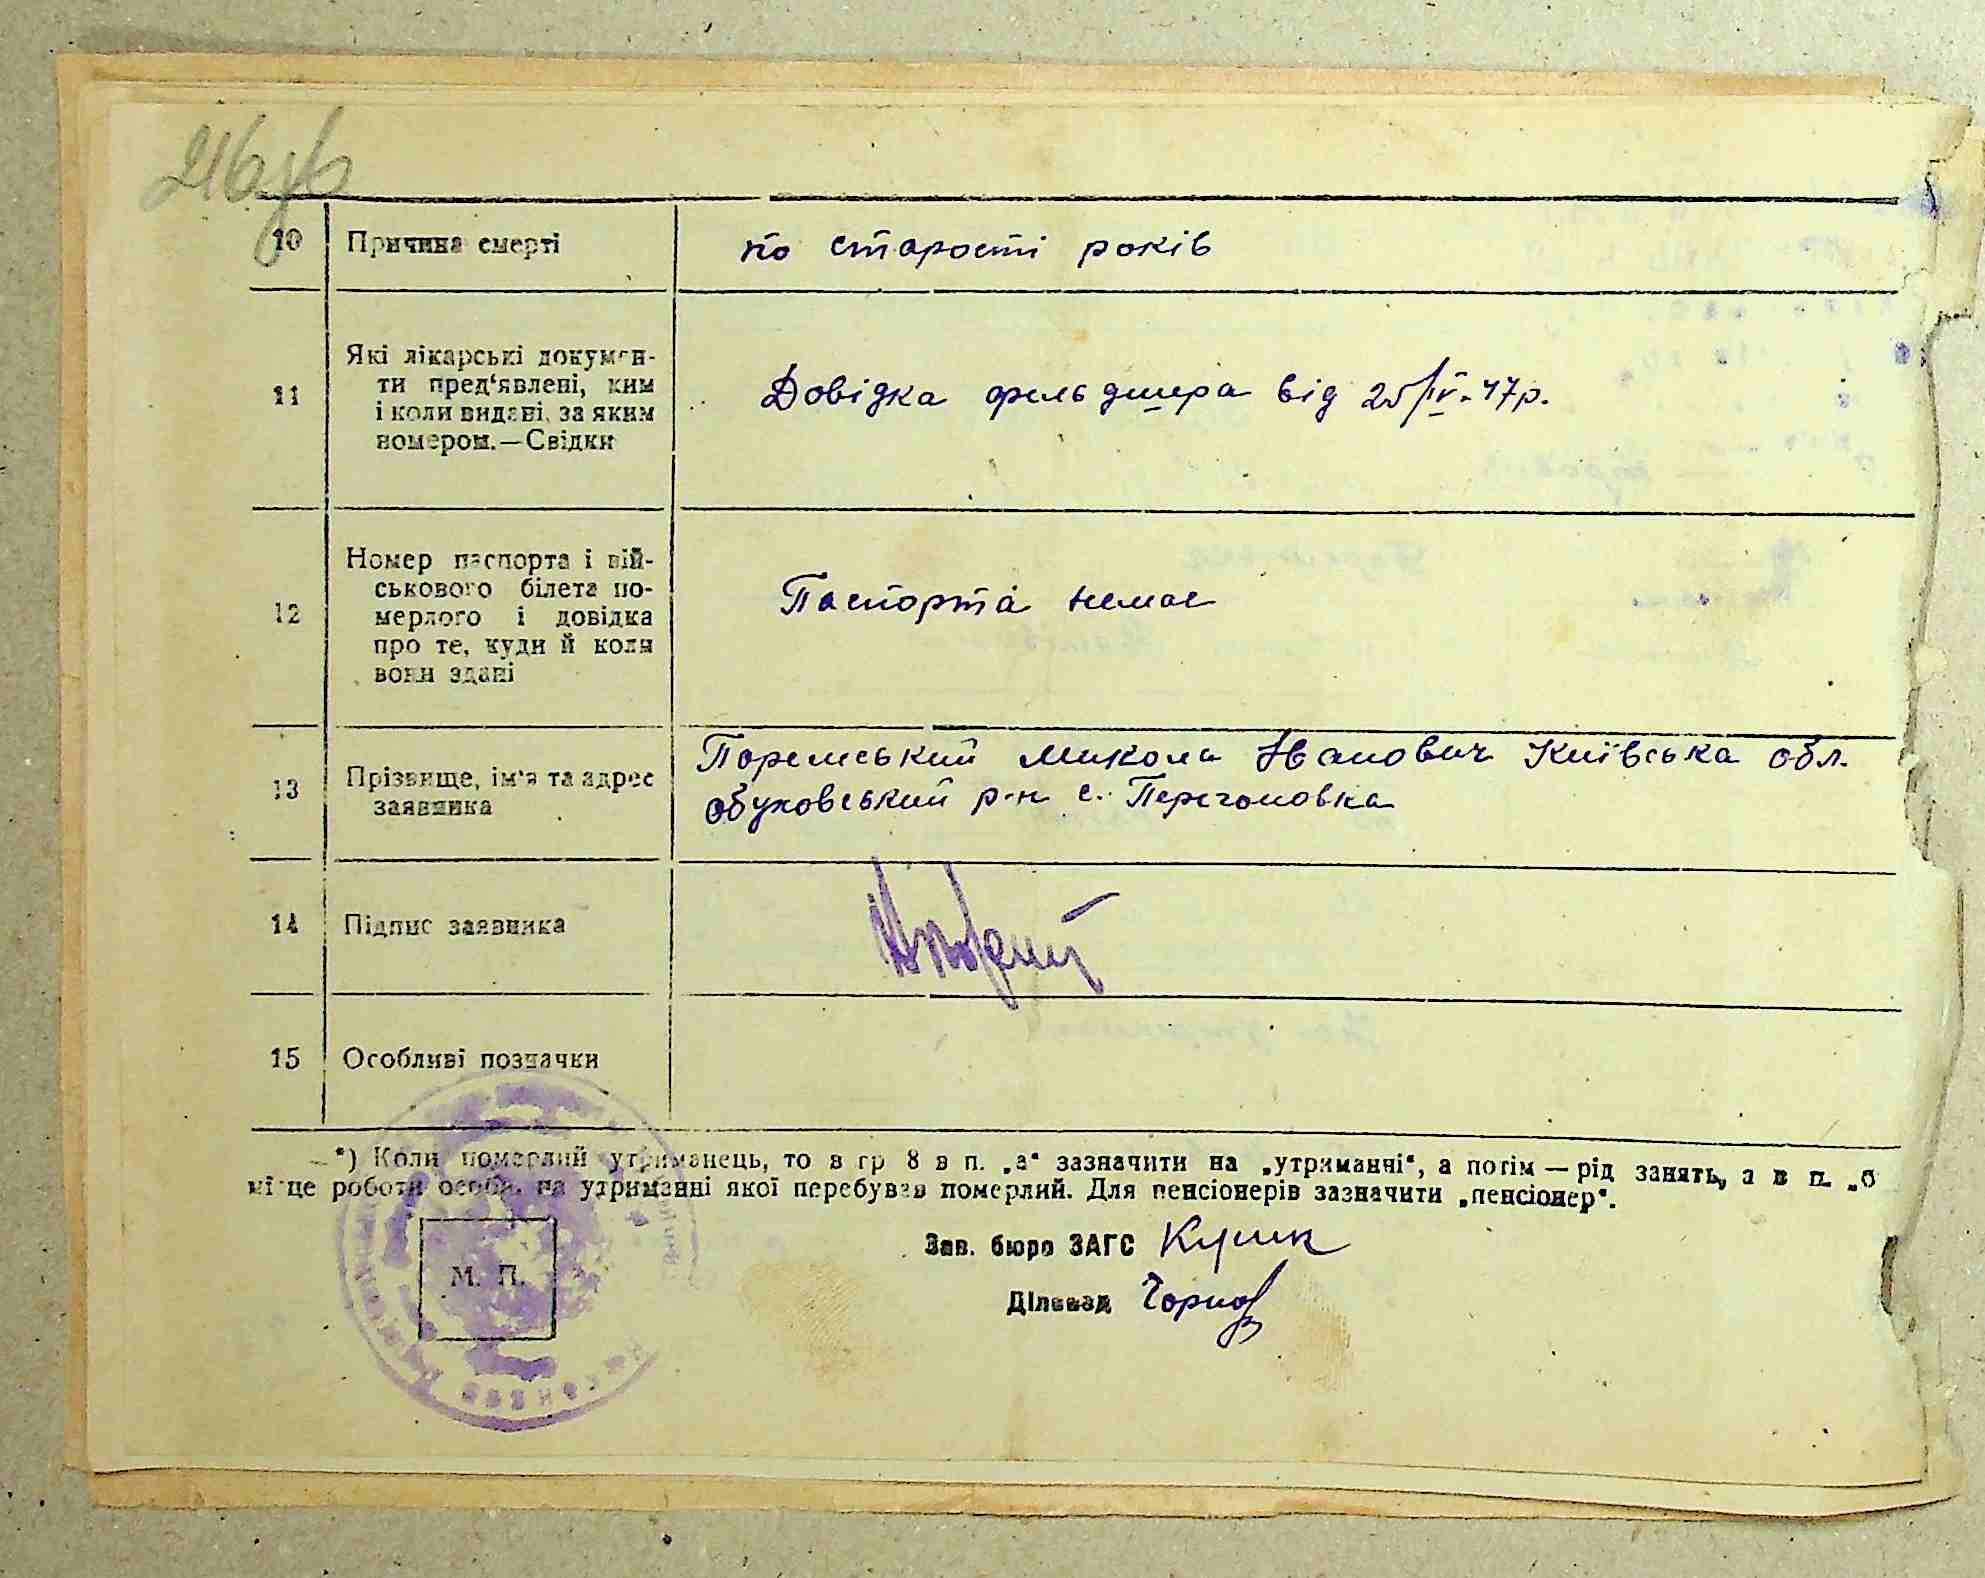 10 Причина смерті по старості років
11 Які лікарські докумен-
ти пред‘явлені, ким
і коли видані, за яким
номером.—Свідки
Довідка фельдшера від 25/IV-47р.
12 Номер паспорта і вій-
ськового білета по-
мерлого і довідка
про те, куди й коли
вони здані
Паспорта немає
13 Прізвище, ім‘я та адрес
заявника
Микола Іванович Київська обл.
обуховський р-н с. Перегоновка
14 Підпис заявника
15 Особливі позначки
*) Коли померлий утриманець, то в гр 8 в п. „а“ зазначити на „утриманні“, а потім — рід занять, а в п. „б
місце роботи особи, на утриманні якої перебував померлий. Для пенсіонерів зазначити „пенсіонер“.
М. П.
Зав. бюро ЗАГС
Діловод